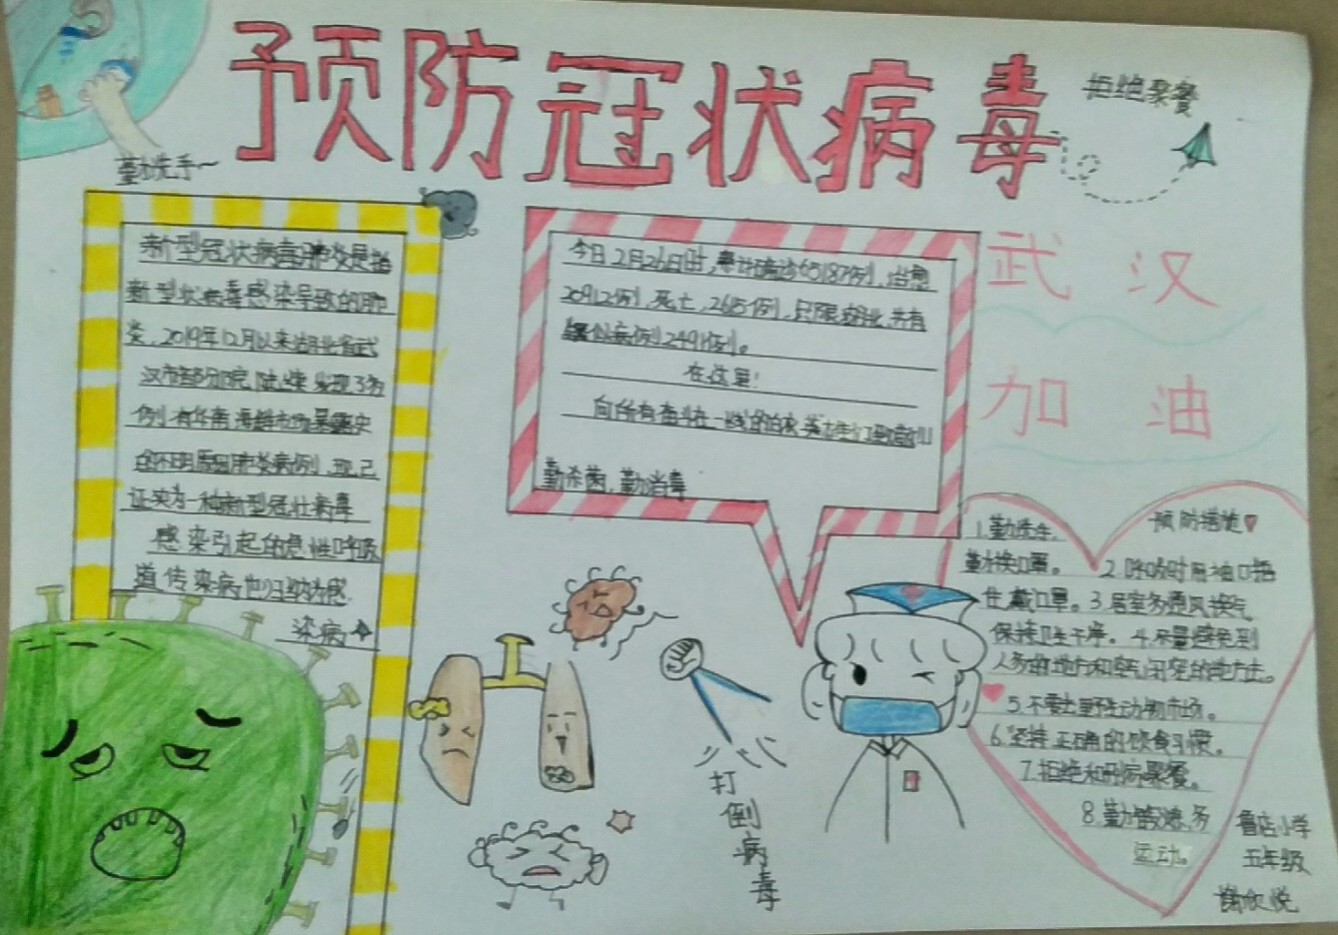 预防冠状病毒
拒绝聚餐
勤洗手~
新型冠状病毒肺炎是指
新型状病毒感染导致的肺
炎，2019年12月以来湖北省武
汉市部分医院陆续发现了多
例有华南海鲜市场暴露史
的不明原因肺炎病例，现已
证实为一种新型冠壮病毒
感染引起的急性呼吸
道传染病也归纳为感
染病
今日2月26日0时，累计确诊65187例，治愈
20912例，死亡，2615例，只限湖北，共有
疑似病例2491例。
在这里！
向所有奋斗在一线的白衣英雄们致敬！
勤杀菌，勤消毒
武汉
加油
预防措施
1.勤洗手、
勤换口罩。2.呼吸时用袖口捂
住戴口罩。3.居室多通风换气
保持卫生干净。4.尽量避免到
人多的地方和空气闭塞的地方去。
5.不要去野生动物市场。
6.坚持正确的饮食习惯。
7.拒绝和朋友聚餐。
8.勤锻炼、多
运动。
打倒病毒
鲁店小学
五年级
欣悦